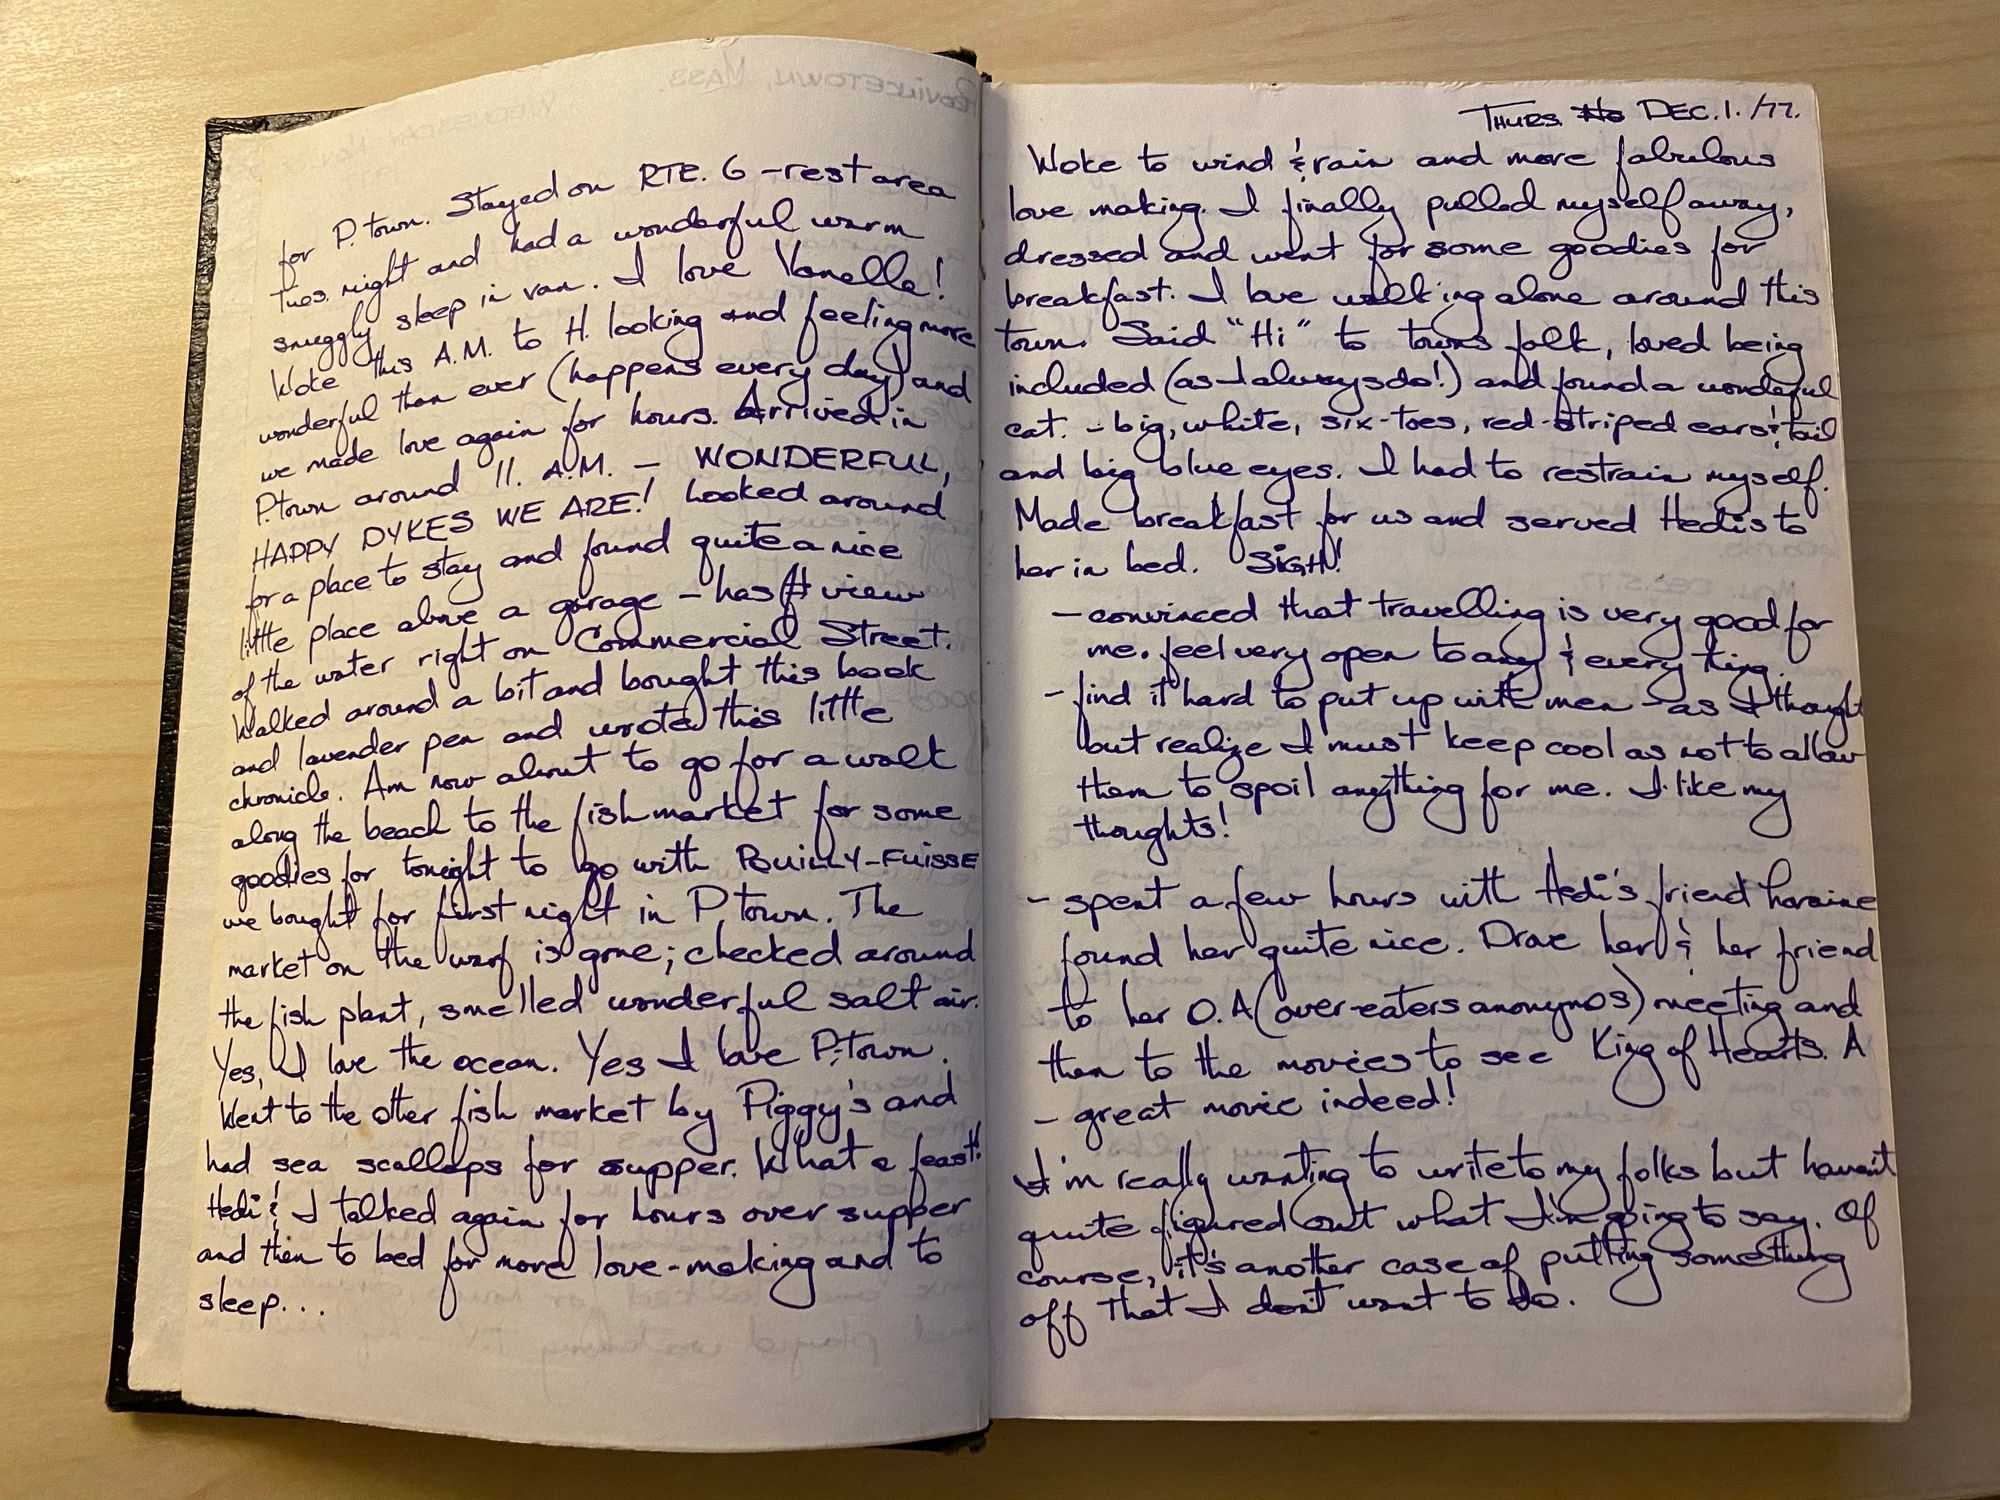 for P.town. Stayed on RTE. 6 - rest area
Tues. night and had a wonderful warm
snuggly sleep in van. I love Vanella!
Woke this A.M. to H. looking and feeling more
wonderful than ever (happens every day) and
we made love again for hours. Arrived in
P.town around 11. A.M. - WONDERFUL,
HAPPY DYKES WE ARE! Looked around
for a place to stay and found quite a nice
little place above a garage - has a view
of the water right on Commercial Street.
Walked around a bit and bought this book
and lavender pen and wrote this little
chronicle. Am now about to go for a walk
along the beach to the fish market for some
goodies for tonight to go with POUILLY-FUISSE
we bought for first night in P.town. The
market on the warf is gone; checked around
the fish plant, smelled wonderful salt air.
Yes, I love the ocean. Yes I love P.town.
Went to the other fish market by Piggy's and
had sea scallops for supper. What a feast!
Hedi & I talked again for hours over supper
and then to bed for more love-making and to
sleep...
THURS. DEC. 1. /77.
Woke to wind & rain and more fabulous
love making. I finally pulled myself away,
dressed and went for some goodies for
breakfast. I love walking alone around this
town. Said "Hi" to towns folk, loved being
included (as I always do!) and found a wonderful
cat. - big, white, six-toes, red-striped ears & tail
and big blue eyes. I had to restrain myself.
Made breakfast for us and served Hedi's to
her in bed. SIGH!
- convinced that travelling is very good for
me. feel very open to any & every thing.
- find it hard to put up with men - as I thought
but realize I must keep cool as not to allow
them to spoil anything for me. I like my
thoughts!
- spent a few hours with Hedi's friend Loraine
found her quite nice. Drove her & her friend
to her O.A (over-eaters anonymos) meeting and
then to the movies to see King of Hearts. A
- great movie indeed!
I'm really wanting to write to my folks but haven't
quite figured out what I'm going to say. Of
course, it's another case of putting something
off that I don't want to do.